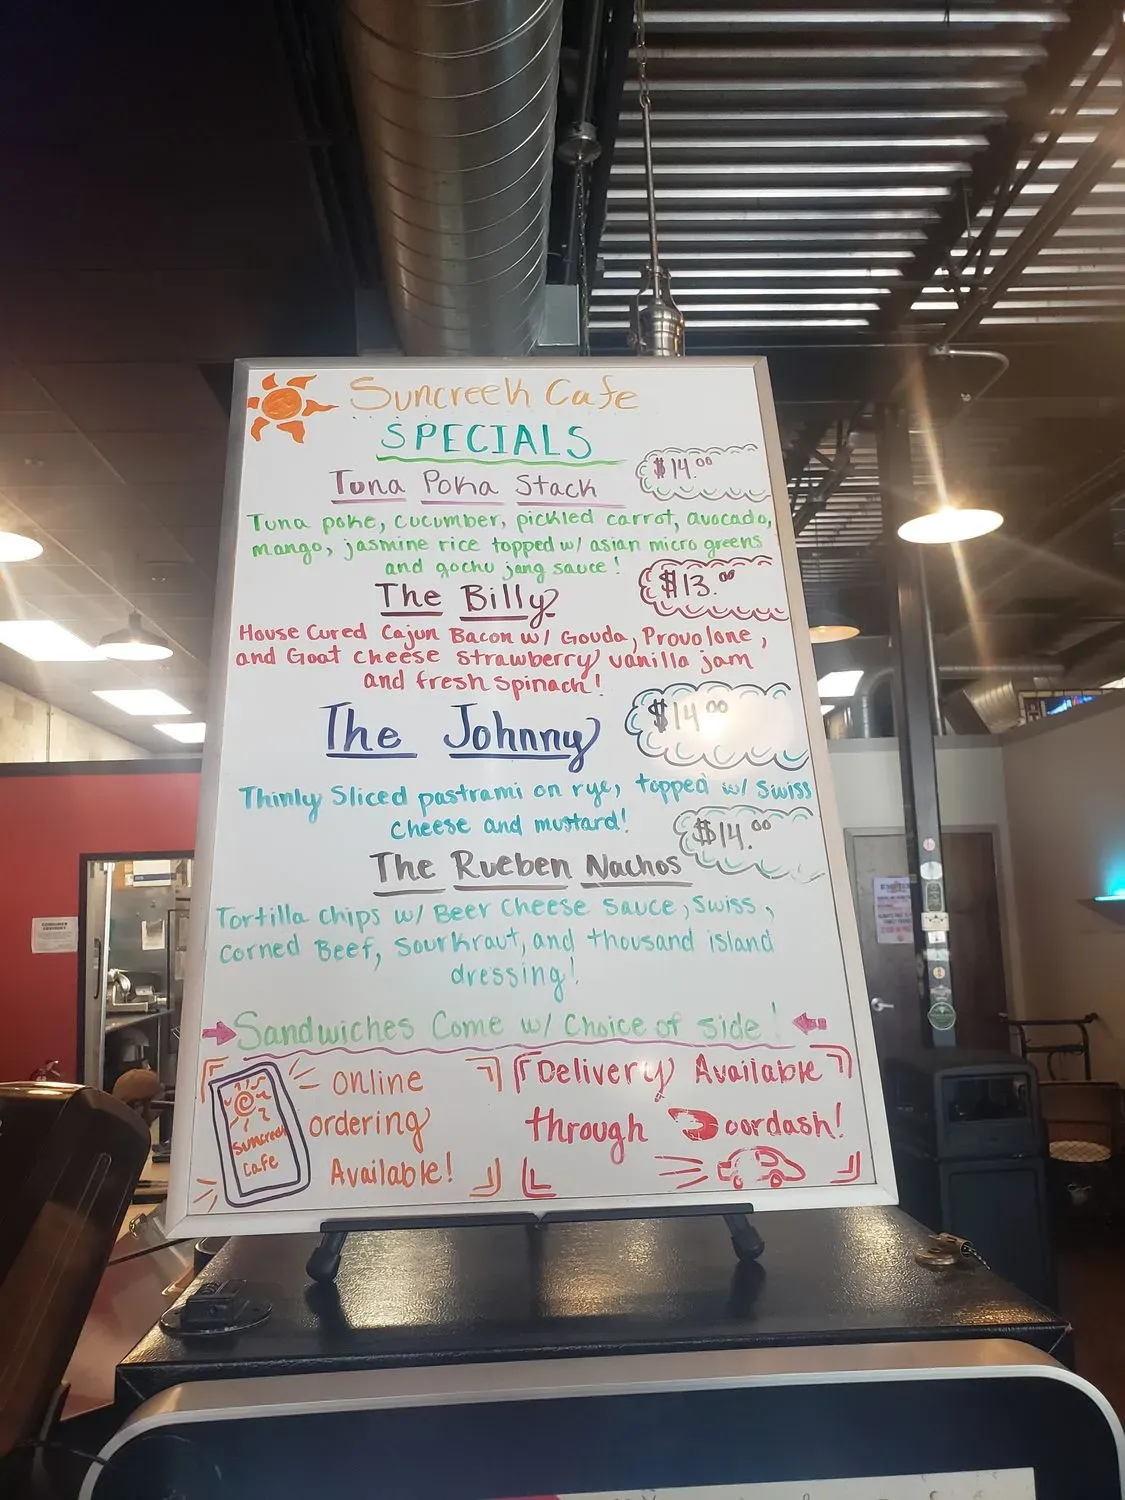 Suncreek Cafe
SPECIALS
Tuna Poka Stack
$14.00
Tuna poke, cucumber, pickled carrot, avocado,
mango, jasmine rice topped w/ asian micro greens
and gochu jang sauce!
The Billy
$13.00
House Cured Cajun Bacon w/ Gouda, Provolone,
and Goat cheese strawberry vanilla jam
and fresh spinach!
The Johnny
$14.00
Thinly Sliced pastrami on rye, topped w/ Swiss
cheese and mustard!
$14.00
The Rueben Nachos
Tortilla chips w/ Beer Cheese Sauce, Swiss,
Corned Beef, Sourkraut, and thousand island
dressing!
Sandwiches Come w/ Choice of side!
Suncreek
Cafe
online
ordering
Available!
Delivery Available
through Doordash!